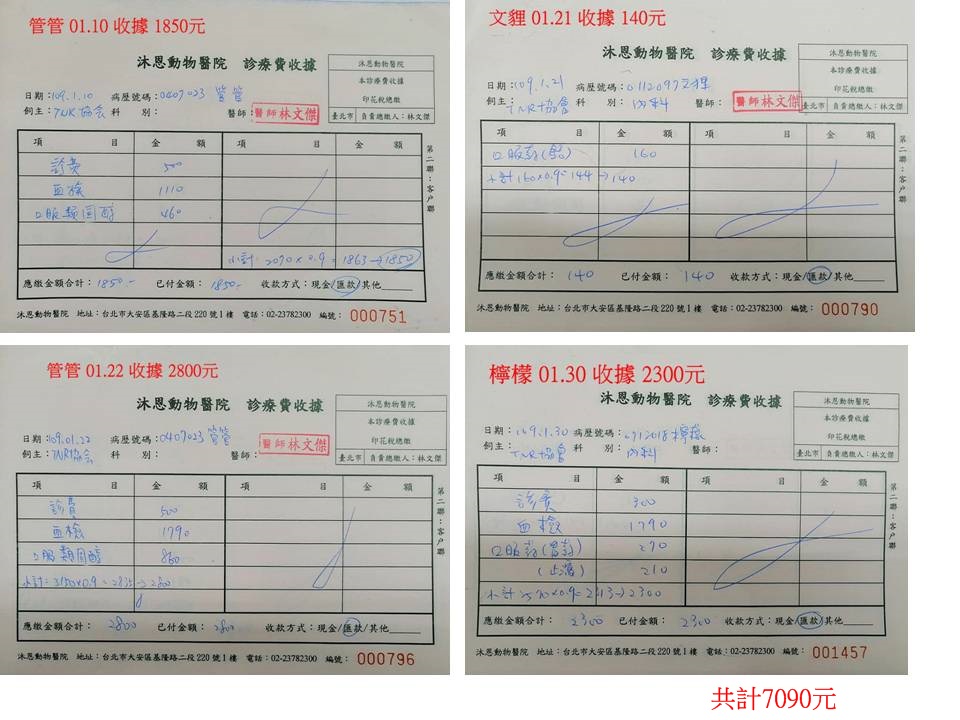 管管 01.10 收據 1850元
沐恩動物醫院 診療費收據
沐恩動物醫院
本診療費收據
印花稅總繳
臺北市 負責總繳人：林文傑
日期：109.1.10 病歷號碼：0407023 管管
飼主：TNR協會 科 別： 醫師： 醫師林文傑
項 目 金 額 項 目 金 額
診費 500
血檢 1110
口服類固醇 460
小計：2070×0.9=1863→1850
應繳金額合計：1850.- 已付金額：1850.- 收款方式：現金/匯款/其他
沐恩動物醫院 地址：台北市大安區基隆路二段220號1樓 電話：02-23782300 編號：000751
文貍 01.21 收據 140元
沐恩動物醫院 診療費收據
沐恩動物醫院
本診療費收據
印花稅總繳
臺北市 負責總繳人：林文傑
日期：109.1.21 病歷號碼：0112097文狸
飼主：TNR協會 科 別：內科 醫師： 醫師林文傑
項 目 金 額 項 目 金 額
160
小計160×0.9=144→140
應繳金額合計：140 已付金額：140 收款方式：現金/匯款/其他
沐恩動物醫院 地址：台北市大安區基隆路二段220號1樓 電話：02-23782300 編號：000790
管管 01.22 收據 2800元
沐恩動物醫院 診療費收據
沐恩動物醫院
本診療費收據
印花稅總繳
臺北市 負責總繳人：林文傑
日期：109.01.22 病歷號碼：0407023管管
飼主：TNR協會 科 別： 醫師： 醫師林文傑
項 目 金 額 項 目 金 額
診費 500
血檢 1790
口服類固醇 860
小計=3150×0.9=2835→2800
應繳金額合計：2800 已付金額：2800 收款方式：現金/匯款/其他
沐恩動物醫院 地址：台北市大安區基隆路二段220號1樓 電話：02-23782300 編號：000796
檸檬 01.30 收據 2300元
沐恩動物醫院 診療費收據
沐恩動物醫院
本診療費收據
印花稅總繳
臺北市 負責總繳人：林文傑
日期：109.1.30 病歷號碼：檸檬
飼主：TNR協會 科 別：內科 醫師：
項 目 金 額 項 目 金 額
診費 300
血檢 1790
270
210
小計2570×0.9=2313→2300
應繳金額合計：2300 已付金額：2300 收款方式：現金/匯款/其他
沐恩動物醫院 地址：台北市大安區基隆路二段220號1樓 電話：02-23782300 編號：001457
共計7090元